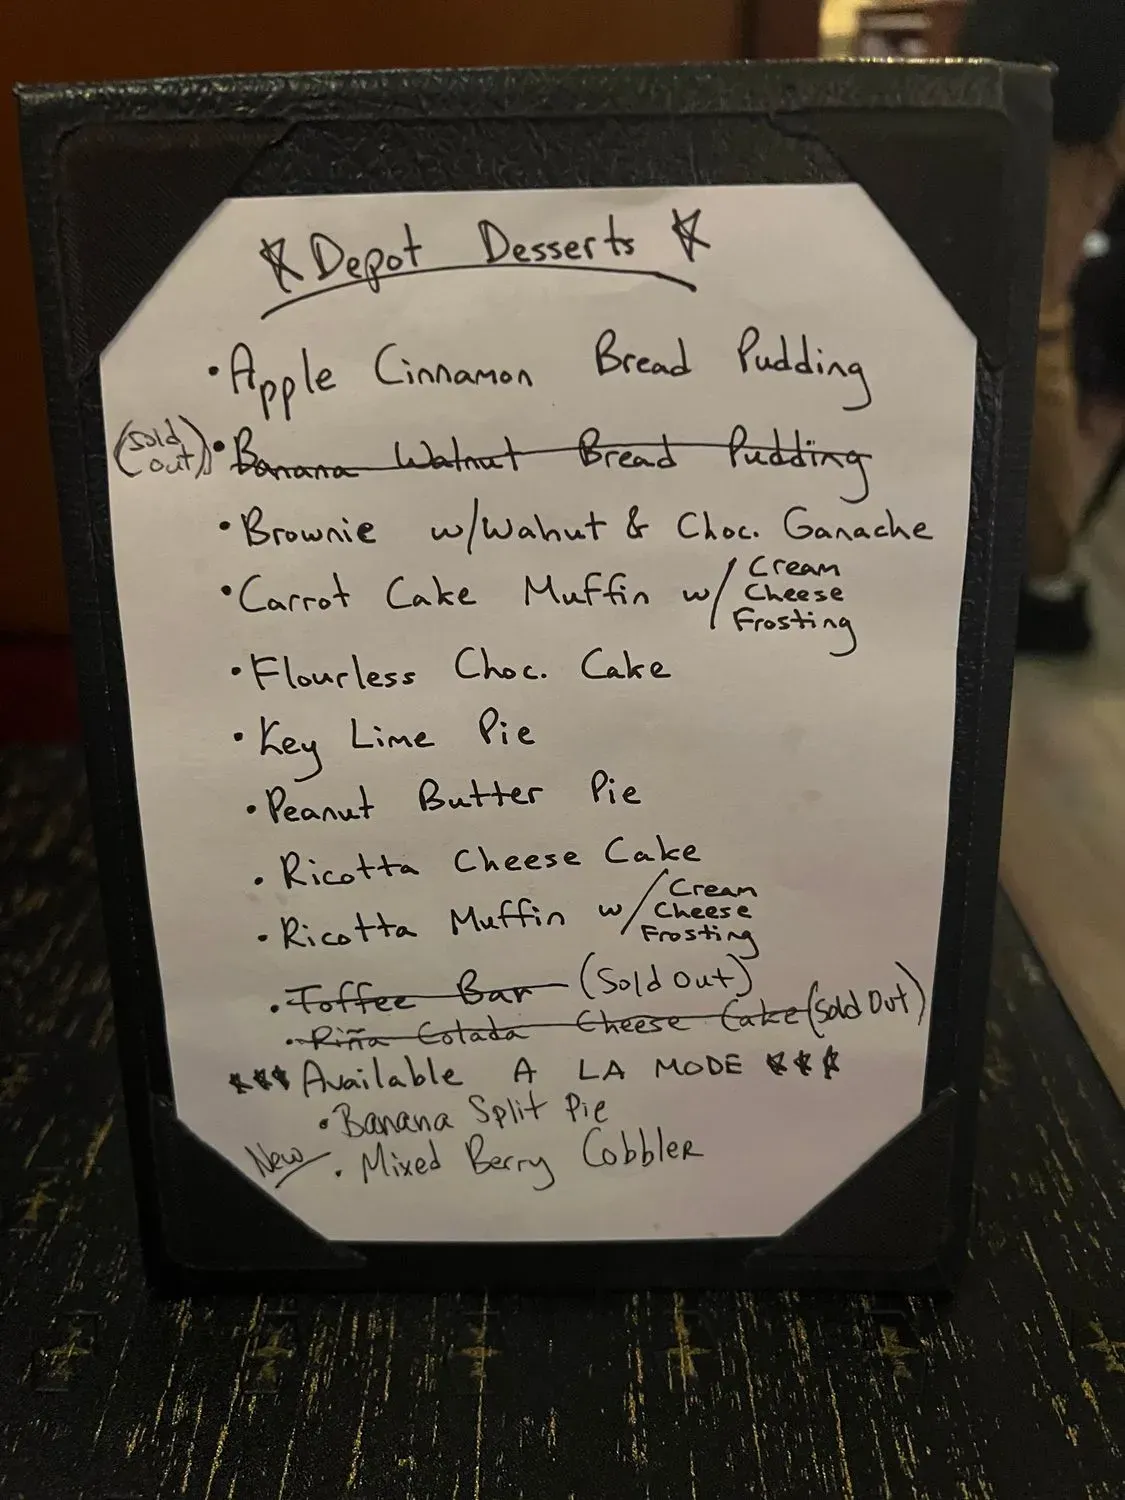 Depot Desserts
• Apple Cinnamon Bread Pudding
(Sold out) • Banana Walnut Bread Pudding
• Brownie w/Walnut & Choc. Ganache
• Carrot Cake Muffin w/ Cream
Cheese
Frosting
• Flourless Choc. Cake
• Key Lime Pie
• Peanut Butter Pie
• Ricotta Cheese Cake
• Ricotta Muffin w/ Cream
Cheese
Frosting
• Toffee Bar (Sold Out)
• Piña Colada Cheese Cake (Sold Out)
*** Available A LA MODE ***
• Banana Split Pie
New • Mixed Berry Cobbler